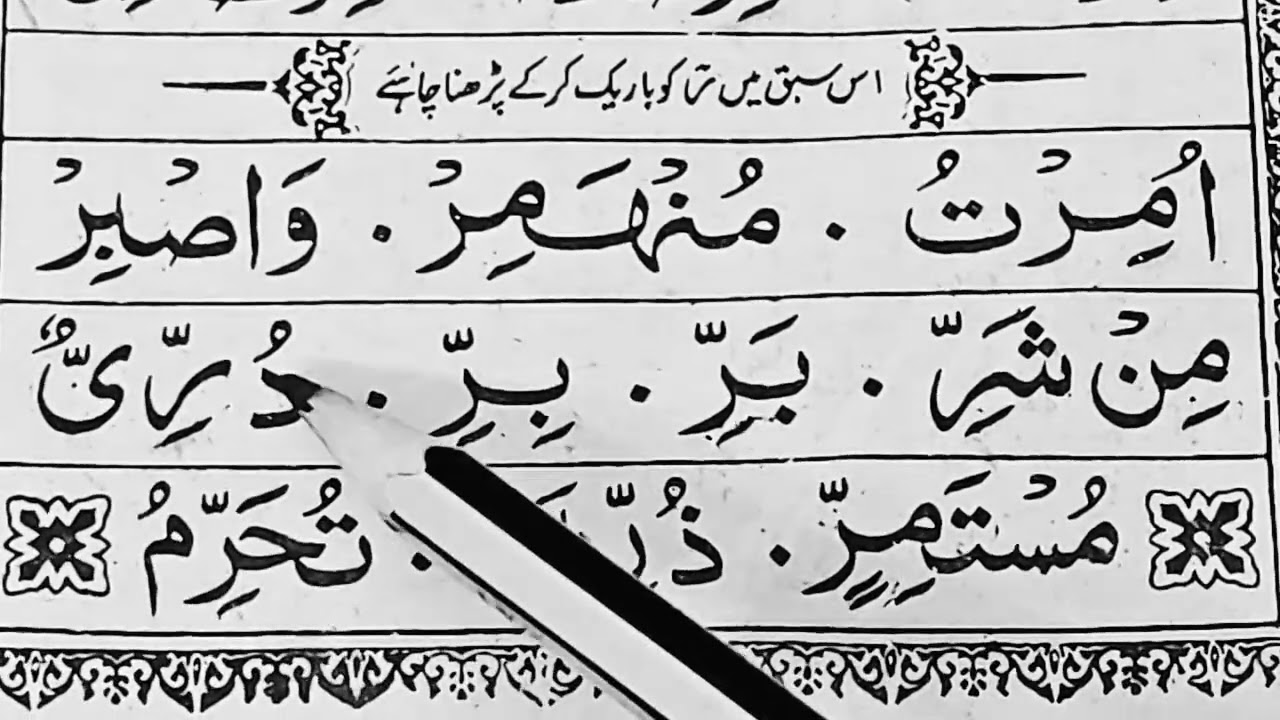 اس سبق میں رّا کو باریک کرکے پڑھنا چاہئے
اُمِرْتُ . مُنْهَمِرْ . وَاصْبِرْ
مِنْ شَرِّ . بَرِّ . بِرِّ . دُرِّىٌّ
مُسْتَمِرٍّ . تُحَرِّمُ